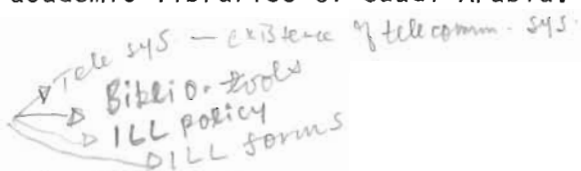 academic libraries of Saudi Arabia.
Tele sys — existence of telecomm. sys.
Biblio. tools
ILL policy
ILL forms